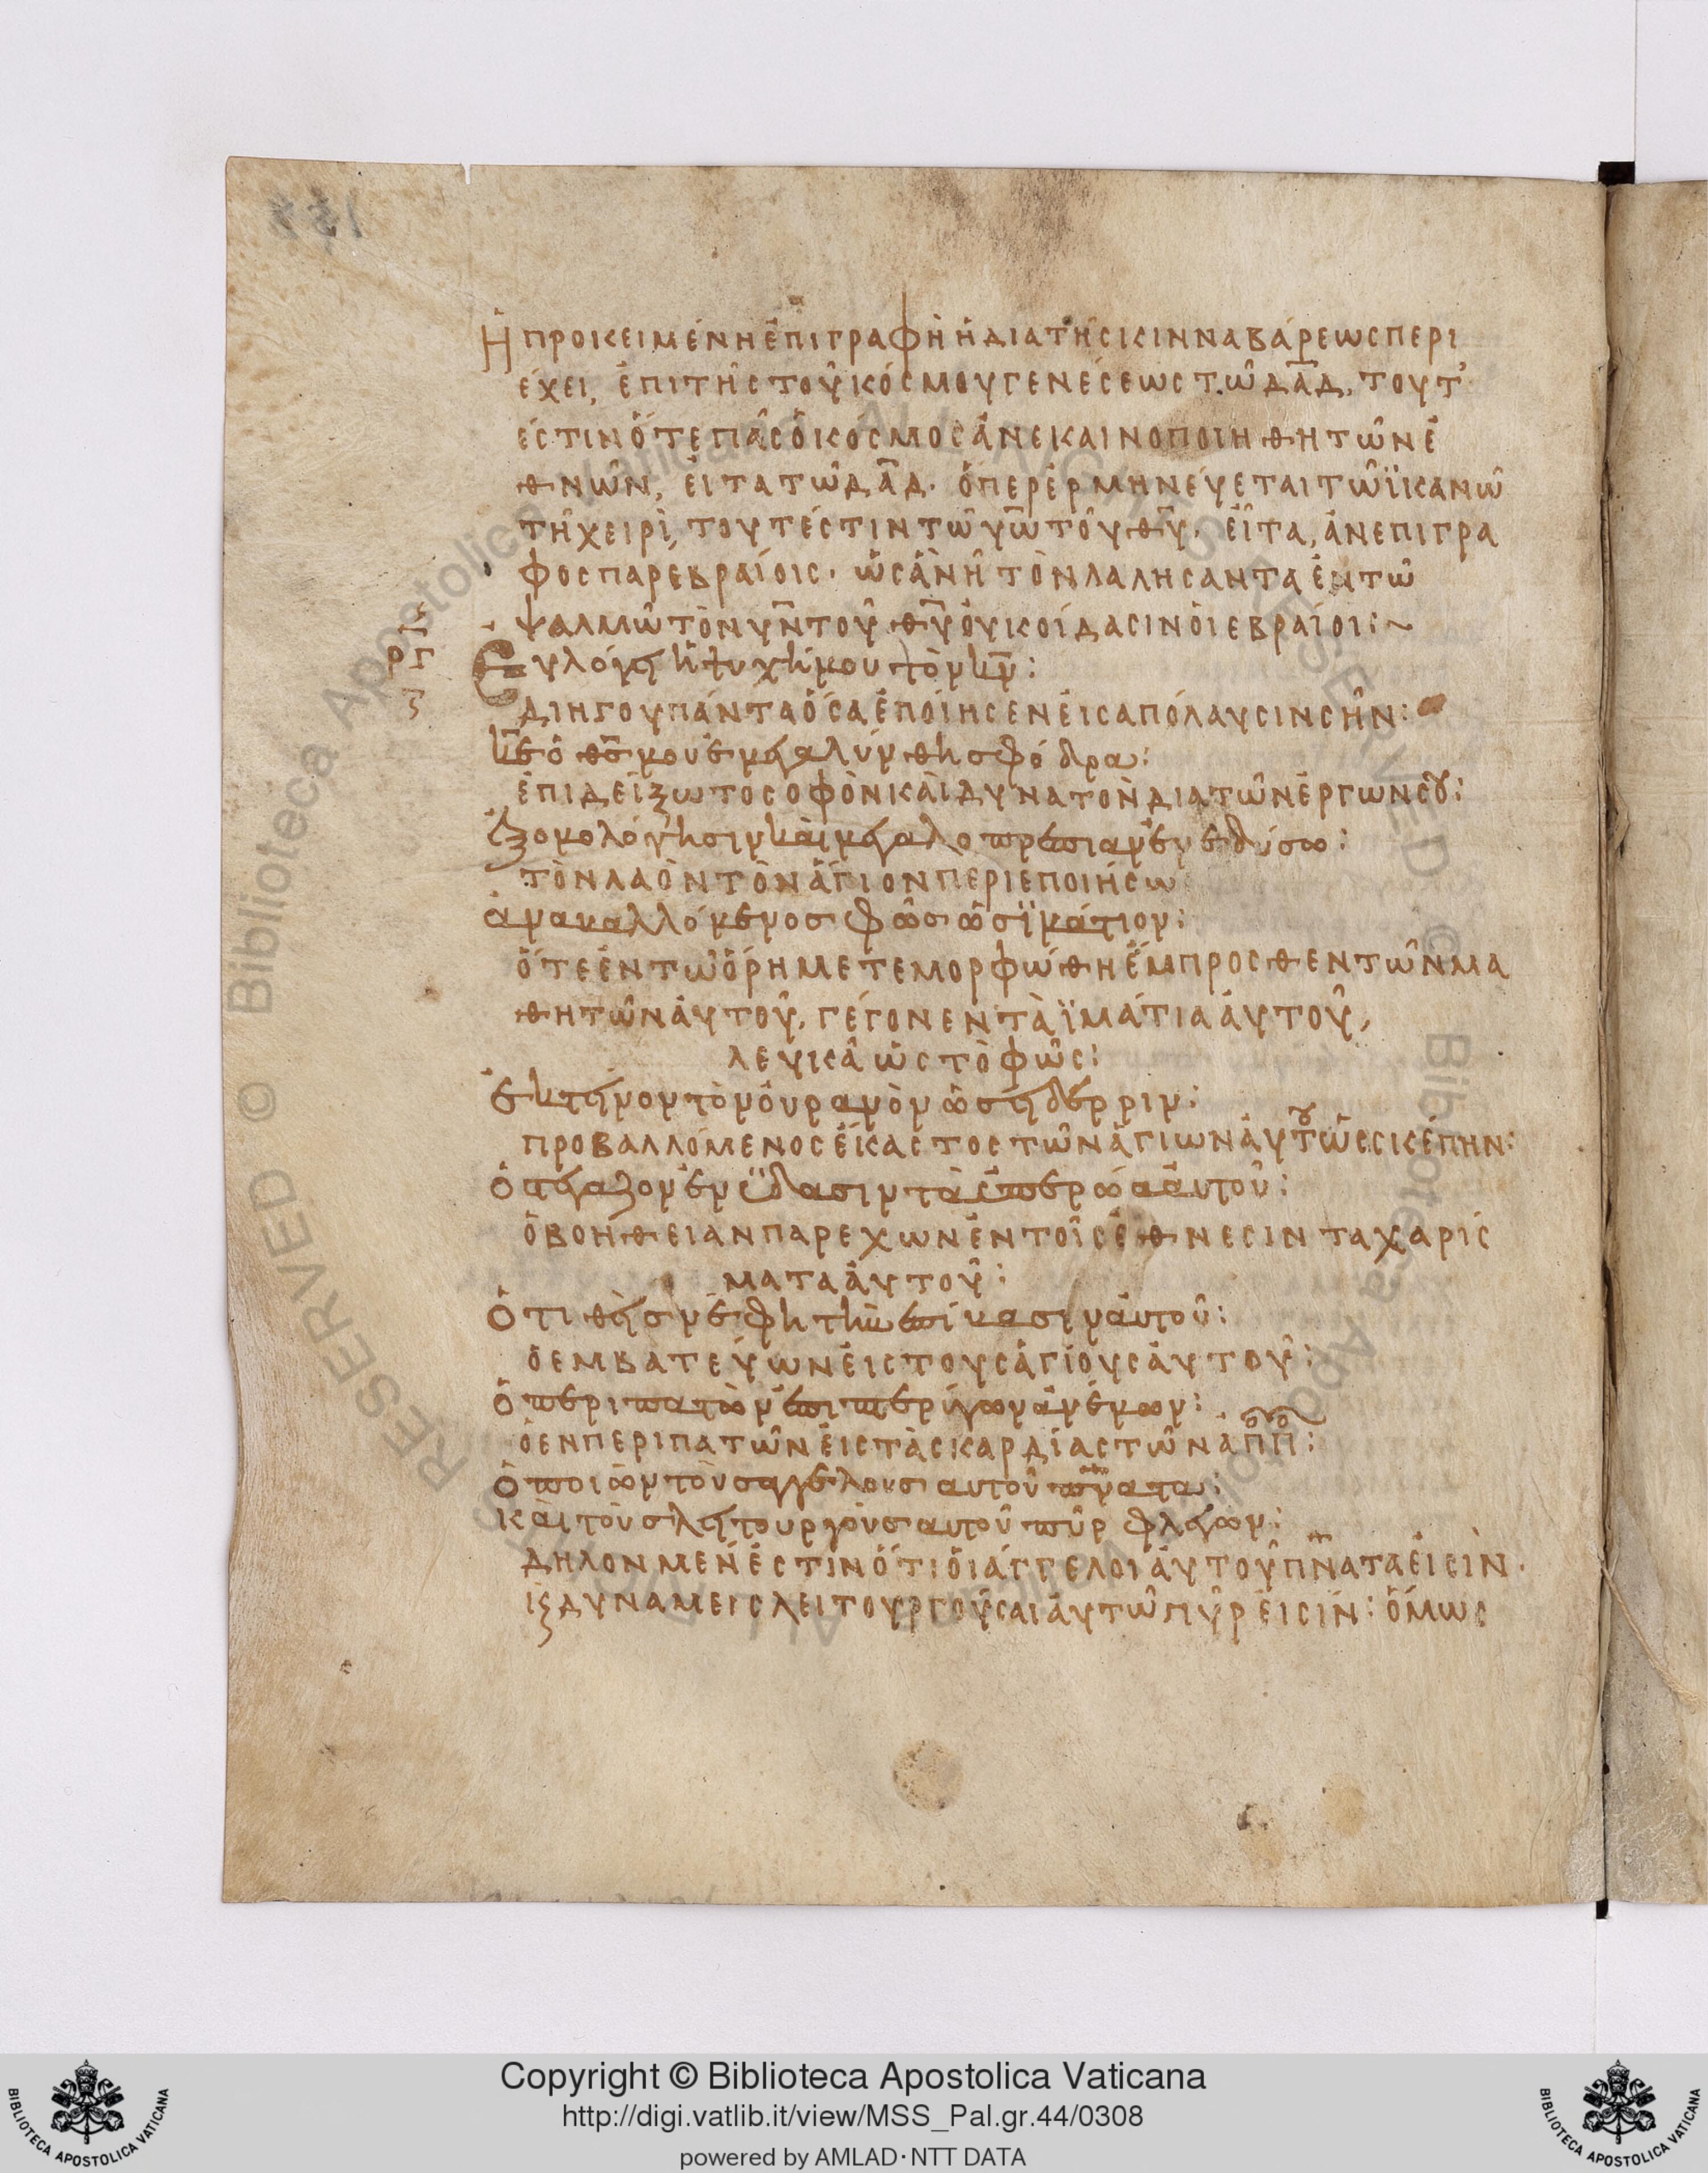 Ἡ προκειμένη ἐπιγραφὴ ἡ διὰ τῆς κινναβάρεως περι
έχει, ἐπὶ τῆς τοῦ κόσμου γενέσεως τῶ δᾱδ, τουτ
έστιν ὅτε πᾶς ὁ κόσμος ἀνεκαινοποιήθη τῶν ἐ
θνῶν, εἶτα τῶ δᾱδ· ὅπερ ἑρμηνεύεται τῶ ἱκανῶ
τῆ χειρὶ, τουτέστιν τῶ ῡω τοῦ θ̄υ· εἶτα, ἀνεπίγρα
φος παρ' ἑβραίοις· ὡς ἂν ἦ τὸν λαλήσαντα ἐν τῶ
ψαλμῶ τὸν ῡν τοῦ θ̄υ οὐκ οἴδασιν οἱ ἑβραῖοι:~
ργ Εὐλόγει ἡ ψυχή μου τὸν κ̄ν:
διηγοῦ πάντα ὅσα ἐποίησεν εἰς ἀπόλαυσιν σὴν:
κ̄ε ὁ θ̄ς μου ἐμεγαλύνθη σφόδρα:
ἐπιδείξω τὸ σοφὸν καὶ δυνατὸν διὰ τῶν ἔργων σου:
ἐξομολόγησιν καὶ μεγαλοπρέπιαν ἐνεδύσω:
τὸν λαὸν τὸν ἅγιον περιεποιήσω
ἀναβαλλόμενος φῶς ὡς ἱμάτιον:
ὅτε ἐν τῶ ὄρη μετεμορφώθη ἔμπροσθεν τῶν μα
θητῶν αὐτοῦ, γέγονεν τὰ ἱμάτια αὐτοῦ,
λευκὰ ὡς τὸ φῶς:
ἐκτείνον τὸν οὐρανὸν ὡσεὶ δέρριν:
προβαλλόμενος εἵκαστος τῶν ἁγίων αὐτοῦ ὡς σκέπην:
ὁ στεγάζον ἐν ὕδασιν τὰ ὑπερῶα αὐτοῦ:
ὁ βοήθειαν παρέχων ἐν τοῖς ἔθνεσιν τὰ χαρίς
ματα αὐτοῦ:
Ὁ τιθεὶς νέφη τὴν ἐπίβασιν αὐτοῦ:
ὁ ἐμβατεύων εἰς τοὺς ἁγίους αὐτοῦ:
ὁ περιπατῶν ἐπὶ πτερύγων ἀνέμων:
ὁ ἐνπεριπατῶν εἰς τὰς καρδίας τῶν ἀν̄ων:
Ὁ ποιῶν τοὺς ἀγγέλους αὐτοῦ πν̄ατα:
καὶ τοὺς λειτουργοὺς αὐτοῦ πῦρ φλέγων:
δῆλον μὲν ἐστὶν ὅτι οἱ ἄγγελοι αὐτοῦ πν̄ατα εἰσὶν·
κ δυνάμεις λειτουργοῦσαι αὐτῶ πῦρ εἰσίν: ὅμως
Copyright © Biblioteca Apostolica Vaticana
http://digi.vatlib.it/view/MSS_Pal.gr.44/0308
powered by AMLAD·NTT DATA
BIBLIOTECA APOSTOLICA VATICANA
BIBLIOTECA APOSTOLICA VATICANA